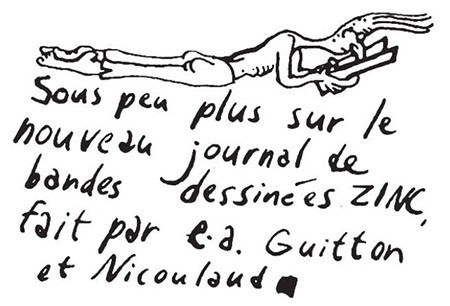 Sous peu plus sur le
nouveau journal de
bandes dessinées ZINC,
fait par e.a. Guitton
et Nicoulaud